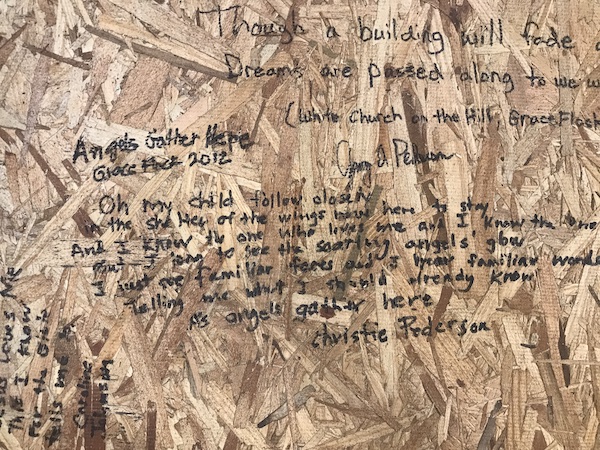 Though a building will fade
Dreams are passed along to we
(White Church on the Hill, Grace Flock
Angels Gather Here
Grace Flock 2012
Oh my child follow closely
in the shelter of the wings have here to stay
And I know the one who loves me and I know the one
long to see the startling angels' glow
I just see familiar faces but I hear familiar words
Telling me what I should already know
As angels gather here
Christie Pederson
Jesus loves me
This I know
For the Bible
tells me so